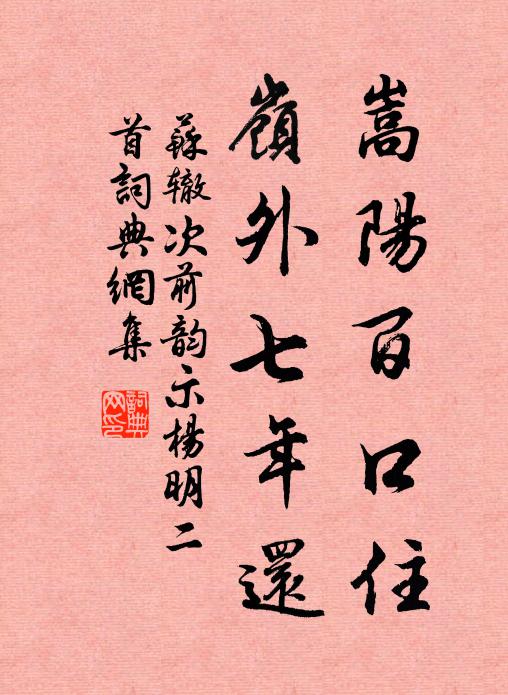 嵩陽百口住
嶺外七年還
蘇轍次前韵示楊明二
首詞典網集
詞典
网印